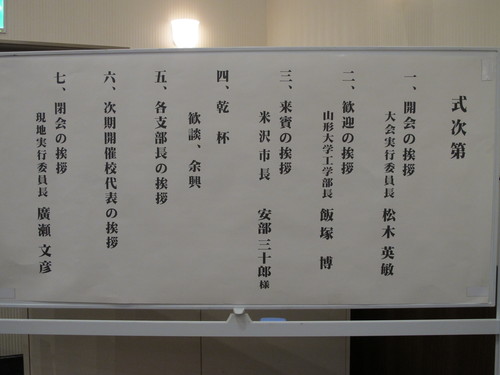 式次第
一、開会の挨拶
大会実行委員長 松木英敏
二、歓迎の挨拶
山形大学工学部長 飯塚 博
三、来賓の挨拶
米沢市長 安部三十郎様
四、乾杯
歓談、余興
五、各支部長の挨拶
六、次期開催校代表の挨拶
七、閉会の挨拶
現地実行委員長 廣瀬文彦